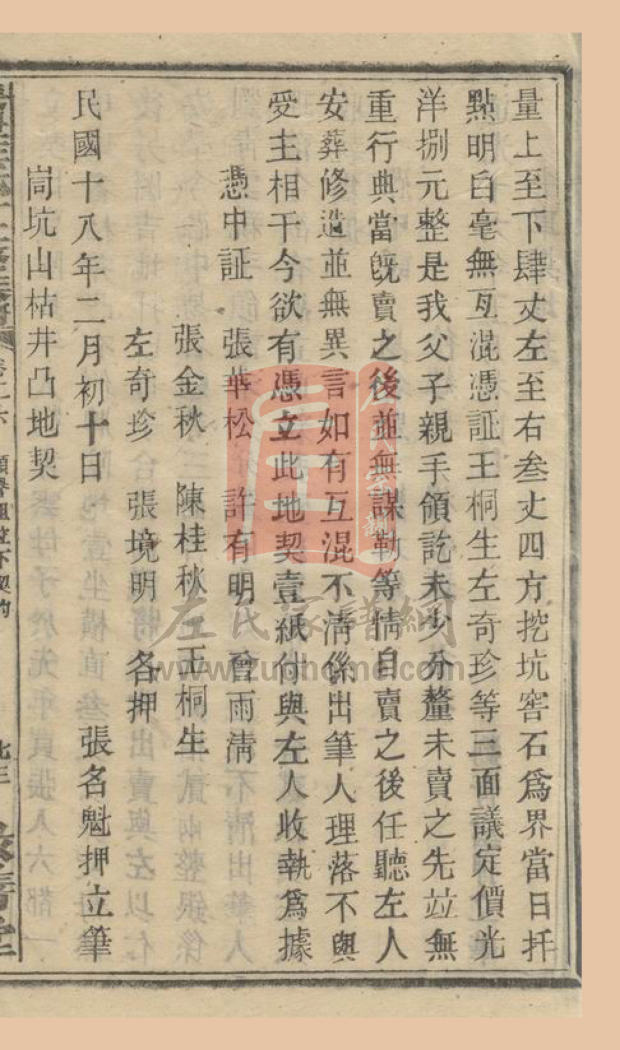 量上至下肆丈左至右叁丈四方挖坑窖石爲界當日扦
點明白毫無互混憑証王桐生左奇珍等三面議定價光
洋捌元整是我父子親手領訖未少分釐未賣之先竝無
重行典當旣賣之後並無謀勒等情自賣之後任聽左人
安葬修造並無異言如有互混不淸係出筆人理落不與
受主相干今欲有憑立此地契壹紙付與左人收執爲據
憑中証 張華松 許有明 會雨淸
張金秋 陳桂秋 王桐生
左奇珍 張境明 各押
民國十八年二月初十日 張名魁押立筆
峝坑山枯井凸地契
左氏家譜網
www.zuphome.com